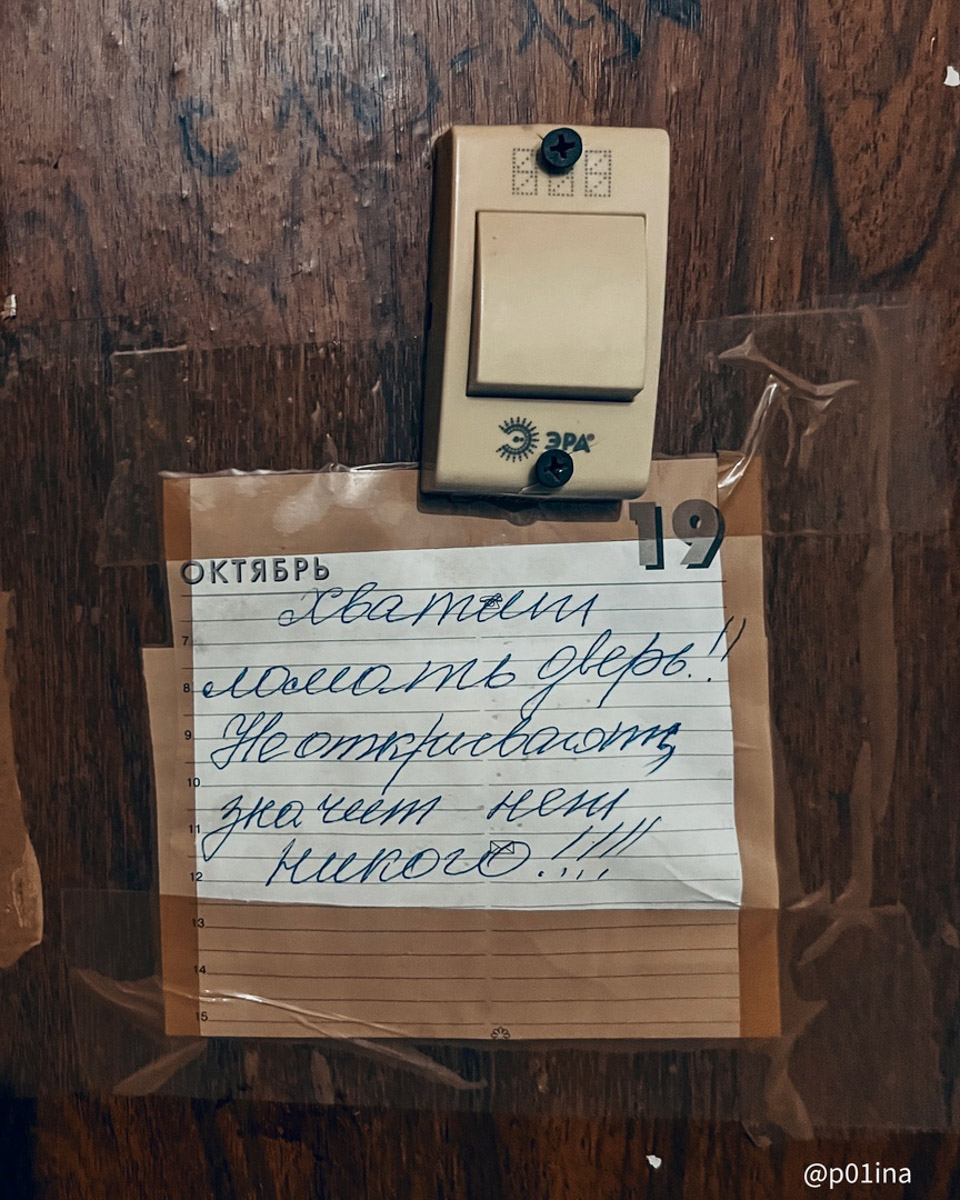 ЭРА
19
ОКТЯБРЬ
Хватит
7
8 ломать дверь!!
9 Не открывают,
10
значит нет
11
никого!!!!
12
13
14
15
@p01ina